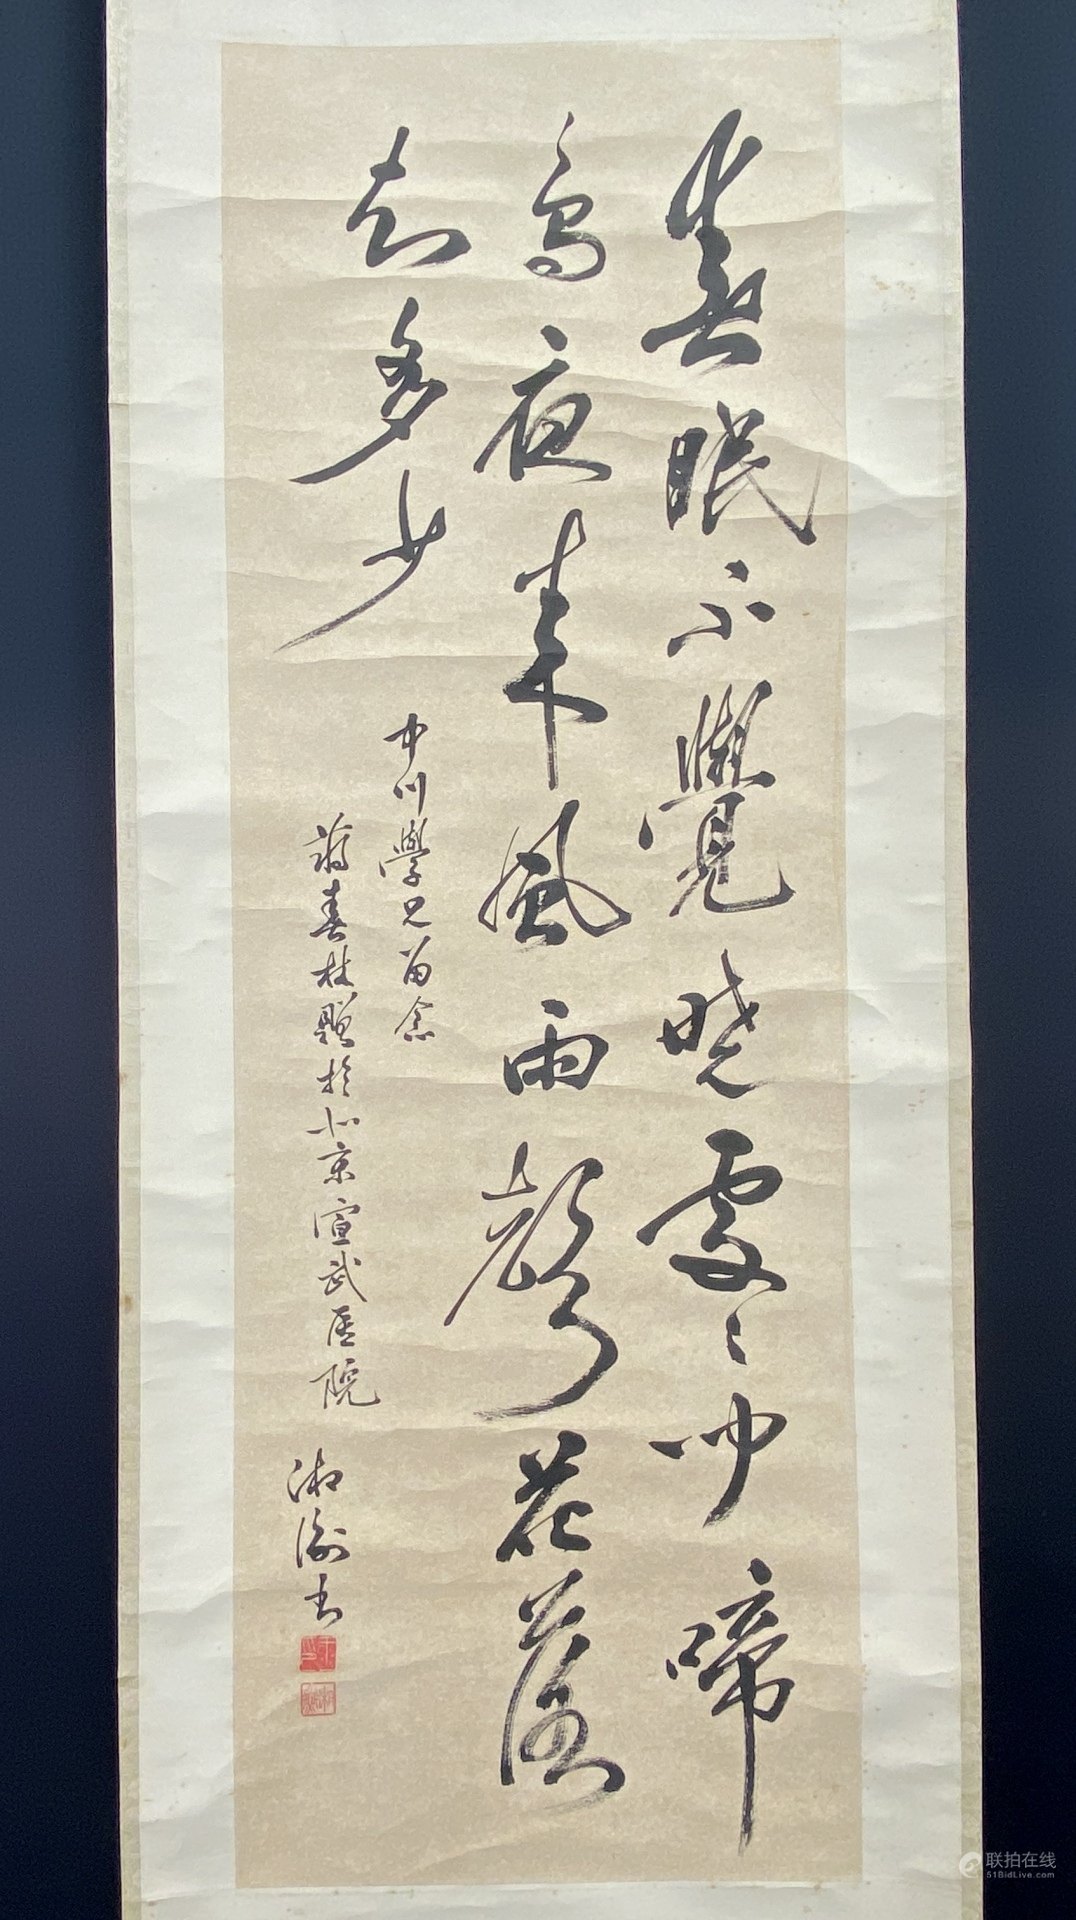 春眠不覺曉處〻聞啼
鳥夜來風雨聲花落
知多少
中川學兄留念
蔣春枝贈於北京宣武医院
湘渝书
联拍在线
51BidLive.com